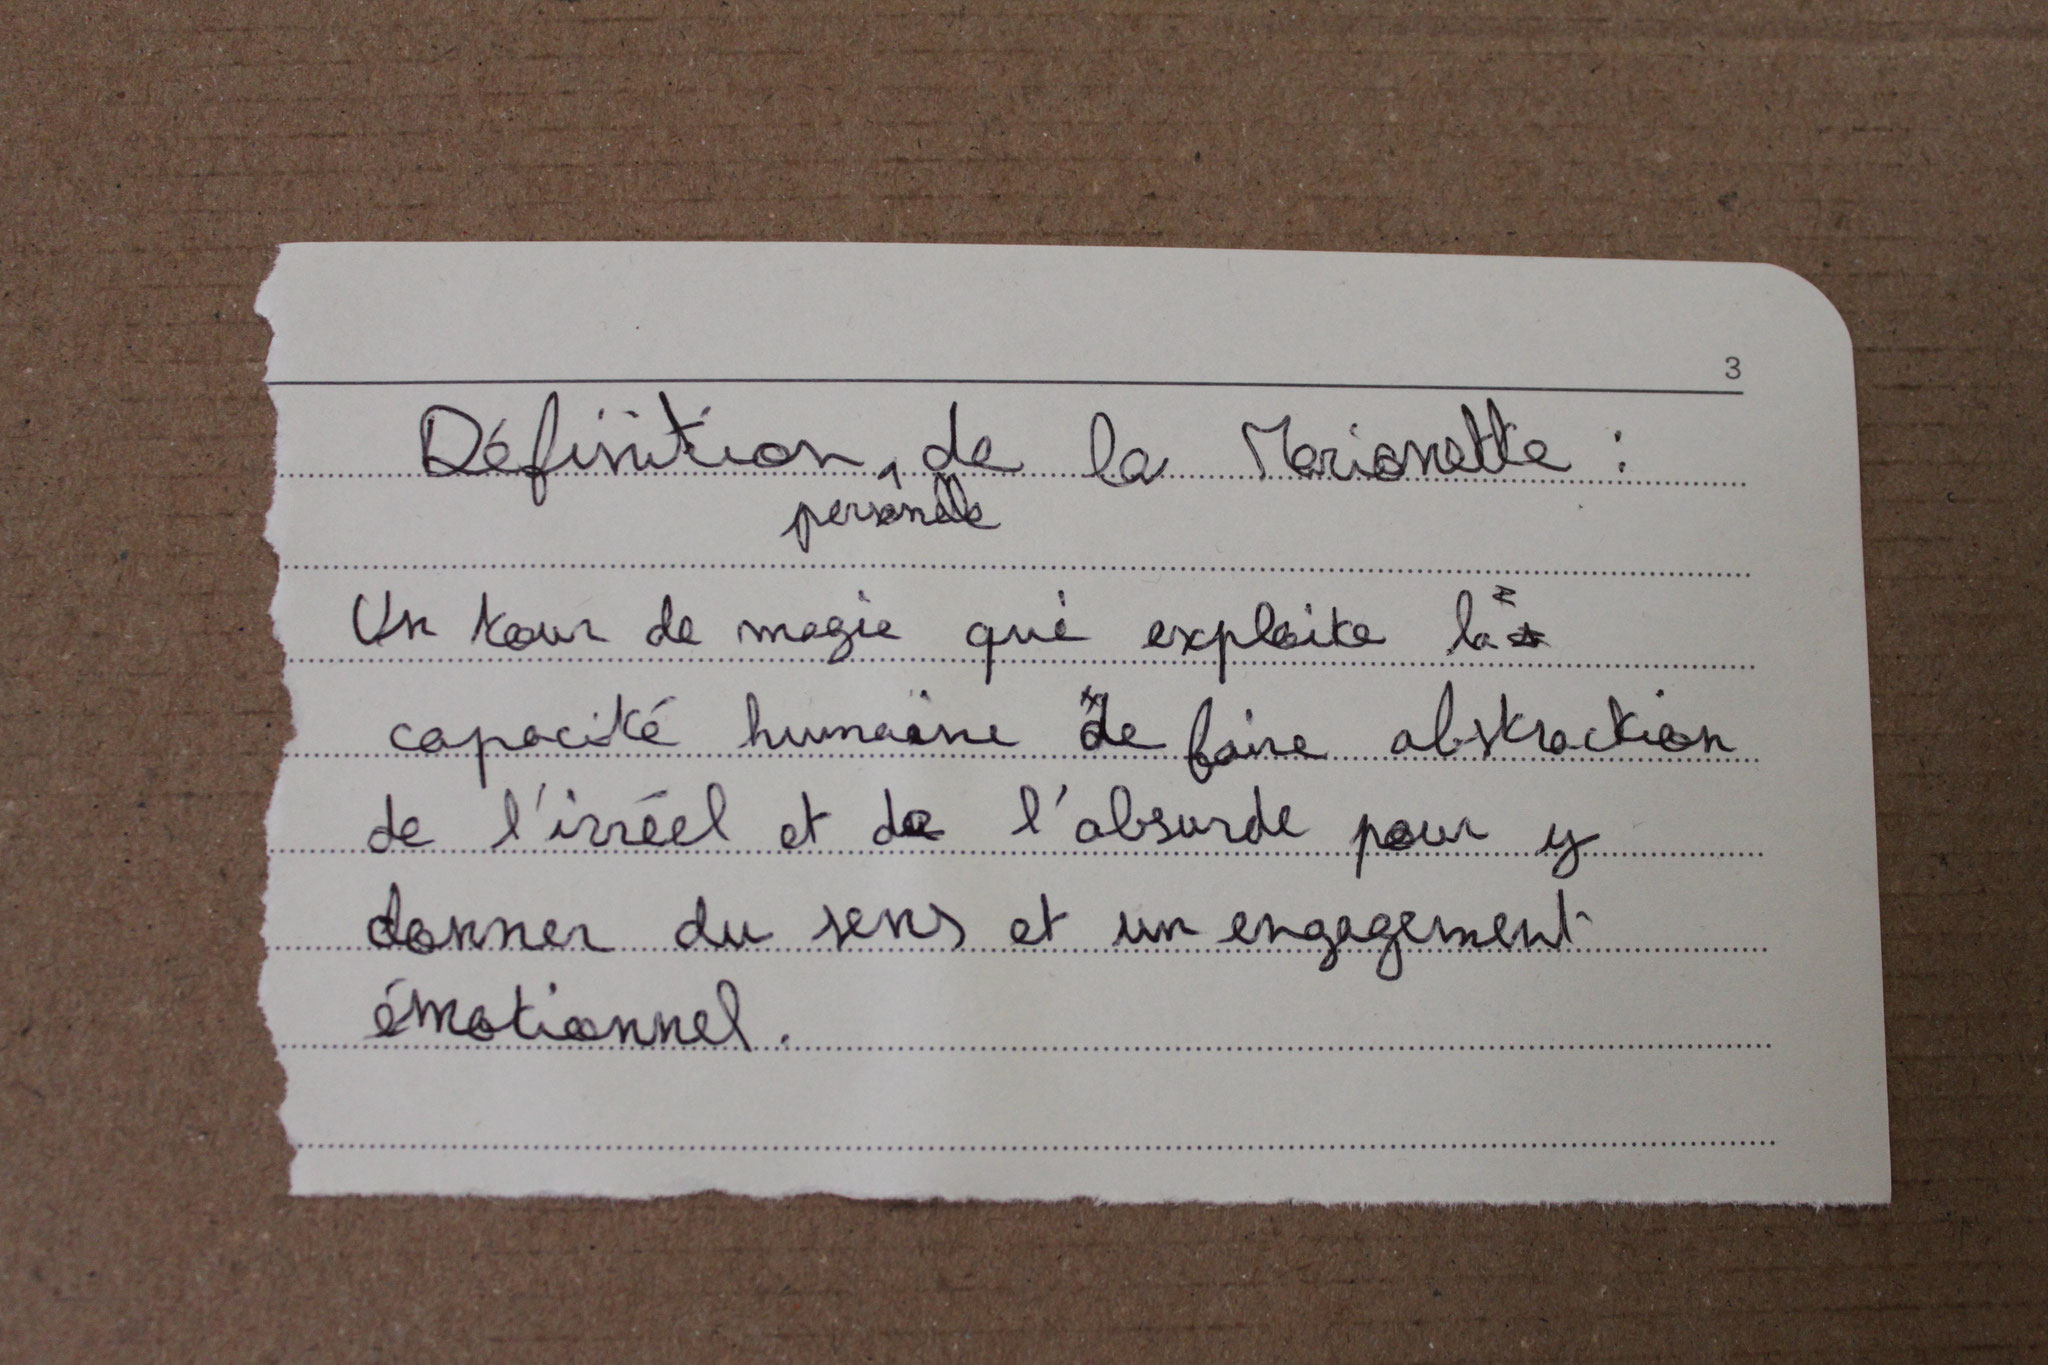 3
Définition de la Marionette :
personelle
Un tour de magie qui exploite la
capacité humaine de faire abstraction
de l'irréel et de l'absurde pour y
donner du sens et un engagement
émotionnel.